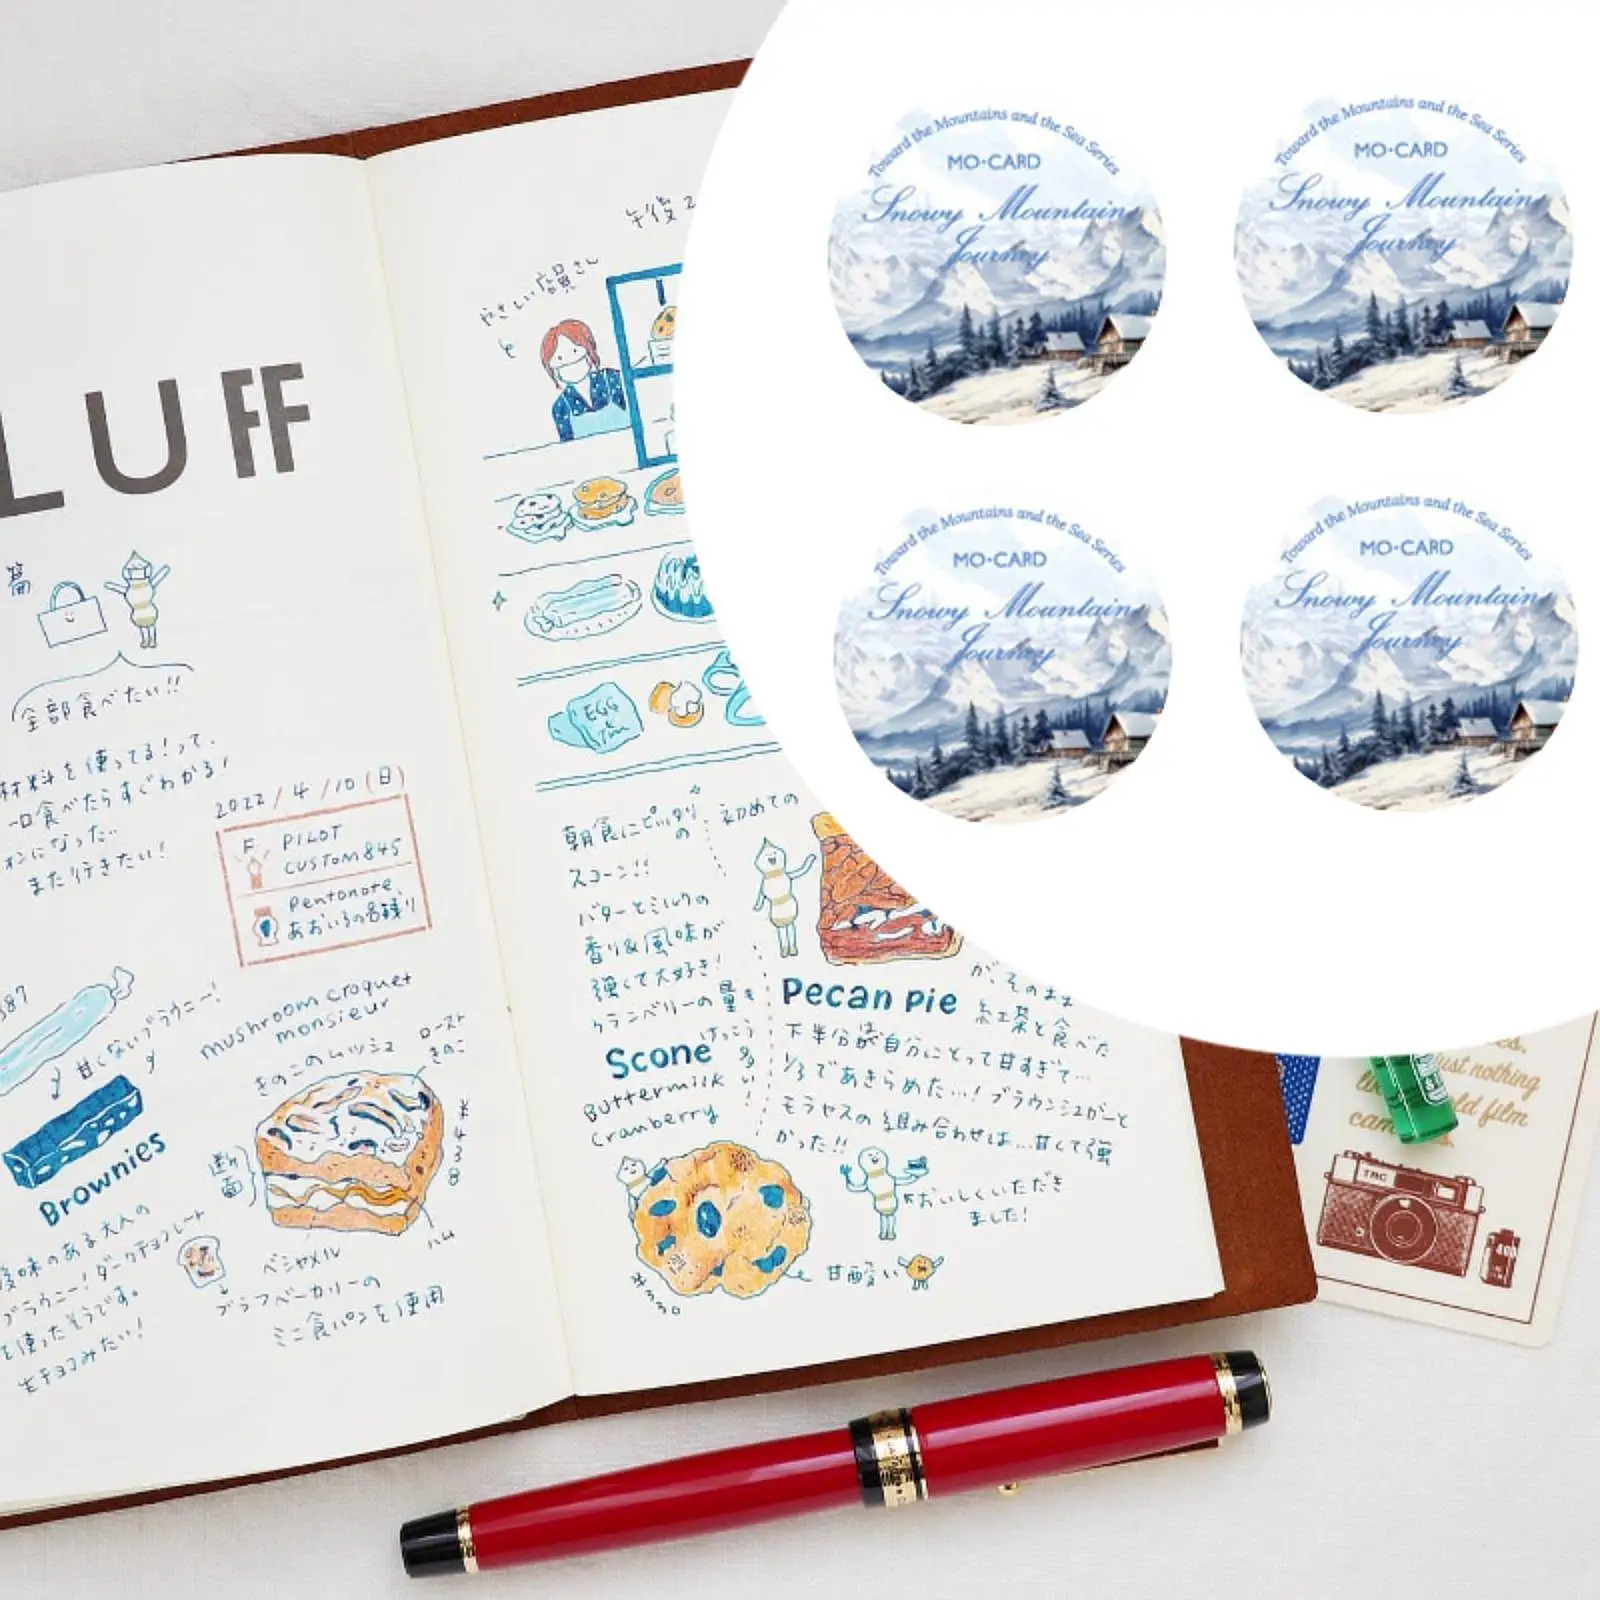 LUFF
篇
全部食べたい!!
材料を使ってる!って、
一口食べたらすぐわかる!
になった..
また行きたい!
2022/4/10(日)
F PILOT
CUSTOM 845
Pentonote
あおいろの名残り
387
甘くないブラウニー!
Brownies
mushroom croquet
monsieur
きのこのムッシュ
ロースト
きのこ
断面
¥438
ハム
ベシャメル
ブラフベーカリーの
ミニ食パンを使用
味のある大人の
ブラウニー!ダークチョコレート
を使ったそうです。
生チョコみたい!
午後2
やさしい店員さん
と
EGG
Tin
朝食にピッタリ
の
スコーン!!
バターとミルクの
香り&風味が
強くて大好き!
クランベリーの量も
けっこう
多い!
Scone
Buttermilk
Cranberry
¥330
甘酸い
初めての
Pecan pie
が、そのまま
紅茶と食べた
下半分が自分にとって甘すぎて...
1/3であきらめた...! ブラウンシュガーと
モラセスの組み合わせは...甘くて強
かった!!
おいしくいただき
ました!
Toward the Mountains and the Sea Series
MO·CARD
Snowy Mountain
Journey
Toward the Mountains and the Sea Series
MO·CARD
Snowy Mountain
Journey
Toward the Mountains and the Sea Series
MO·CARD
Snowy Mountain
Journey
Toward the Mountains and the Sea Series
MO·CARD
Snowy Mountain
Journey
just nothing
old film
TRC